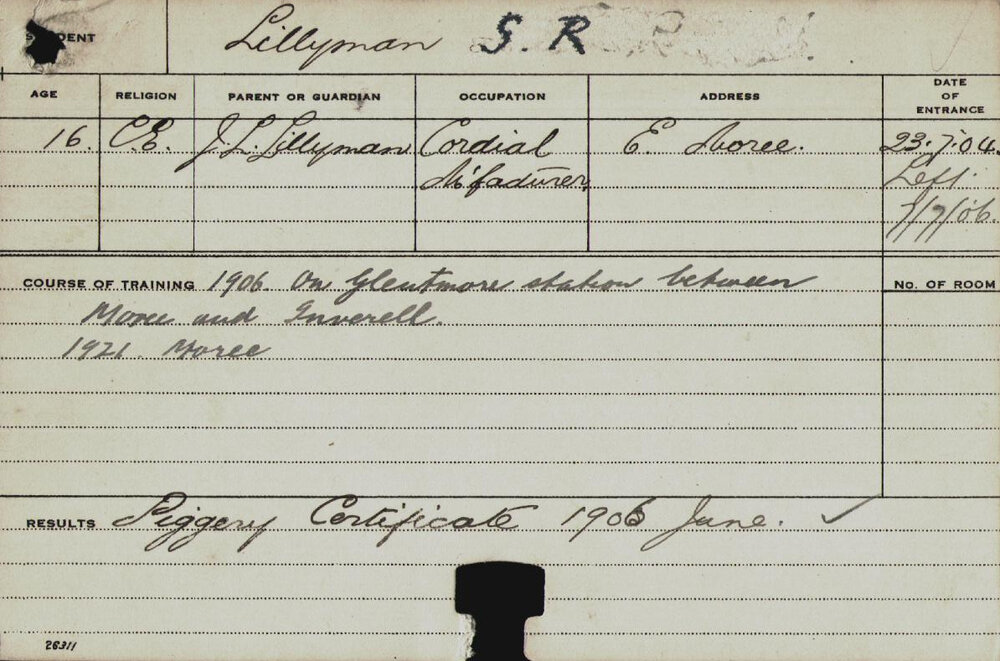 STUDENT Lillyman S. R
AGE RELIGION PARENT OR GUARDIAN OCCUPATION ADDRESS DATE OF ENTRANCE
16. C.E. J. L. Lillyman Cordial E. Moree. 23.7.04.
M'facturer, Left.
7/7/06.
COURSE OF TRAINING 1906. On Glentmore station between No. OF ROOM
Moree and Inverell.
1921. Moree
RESULTS Piggery Certificate 1906 June. ✓
26311